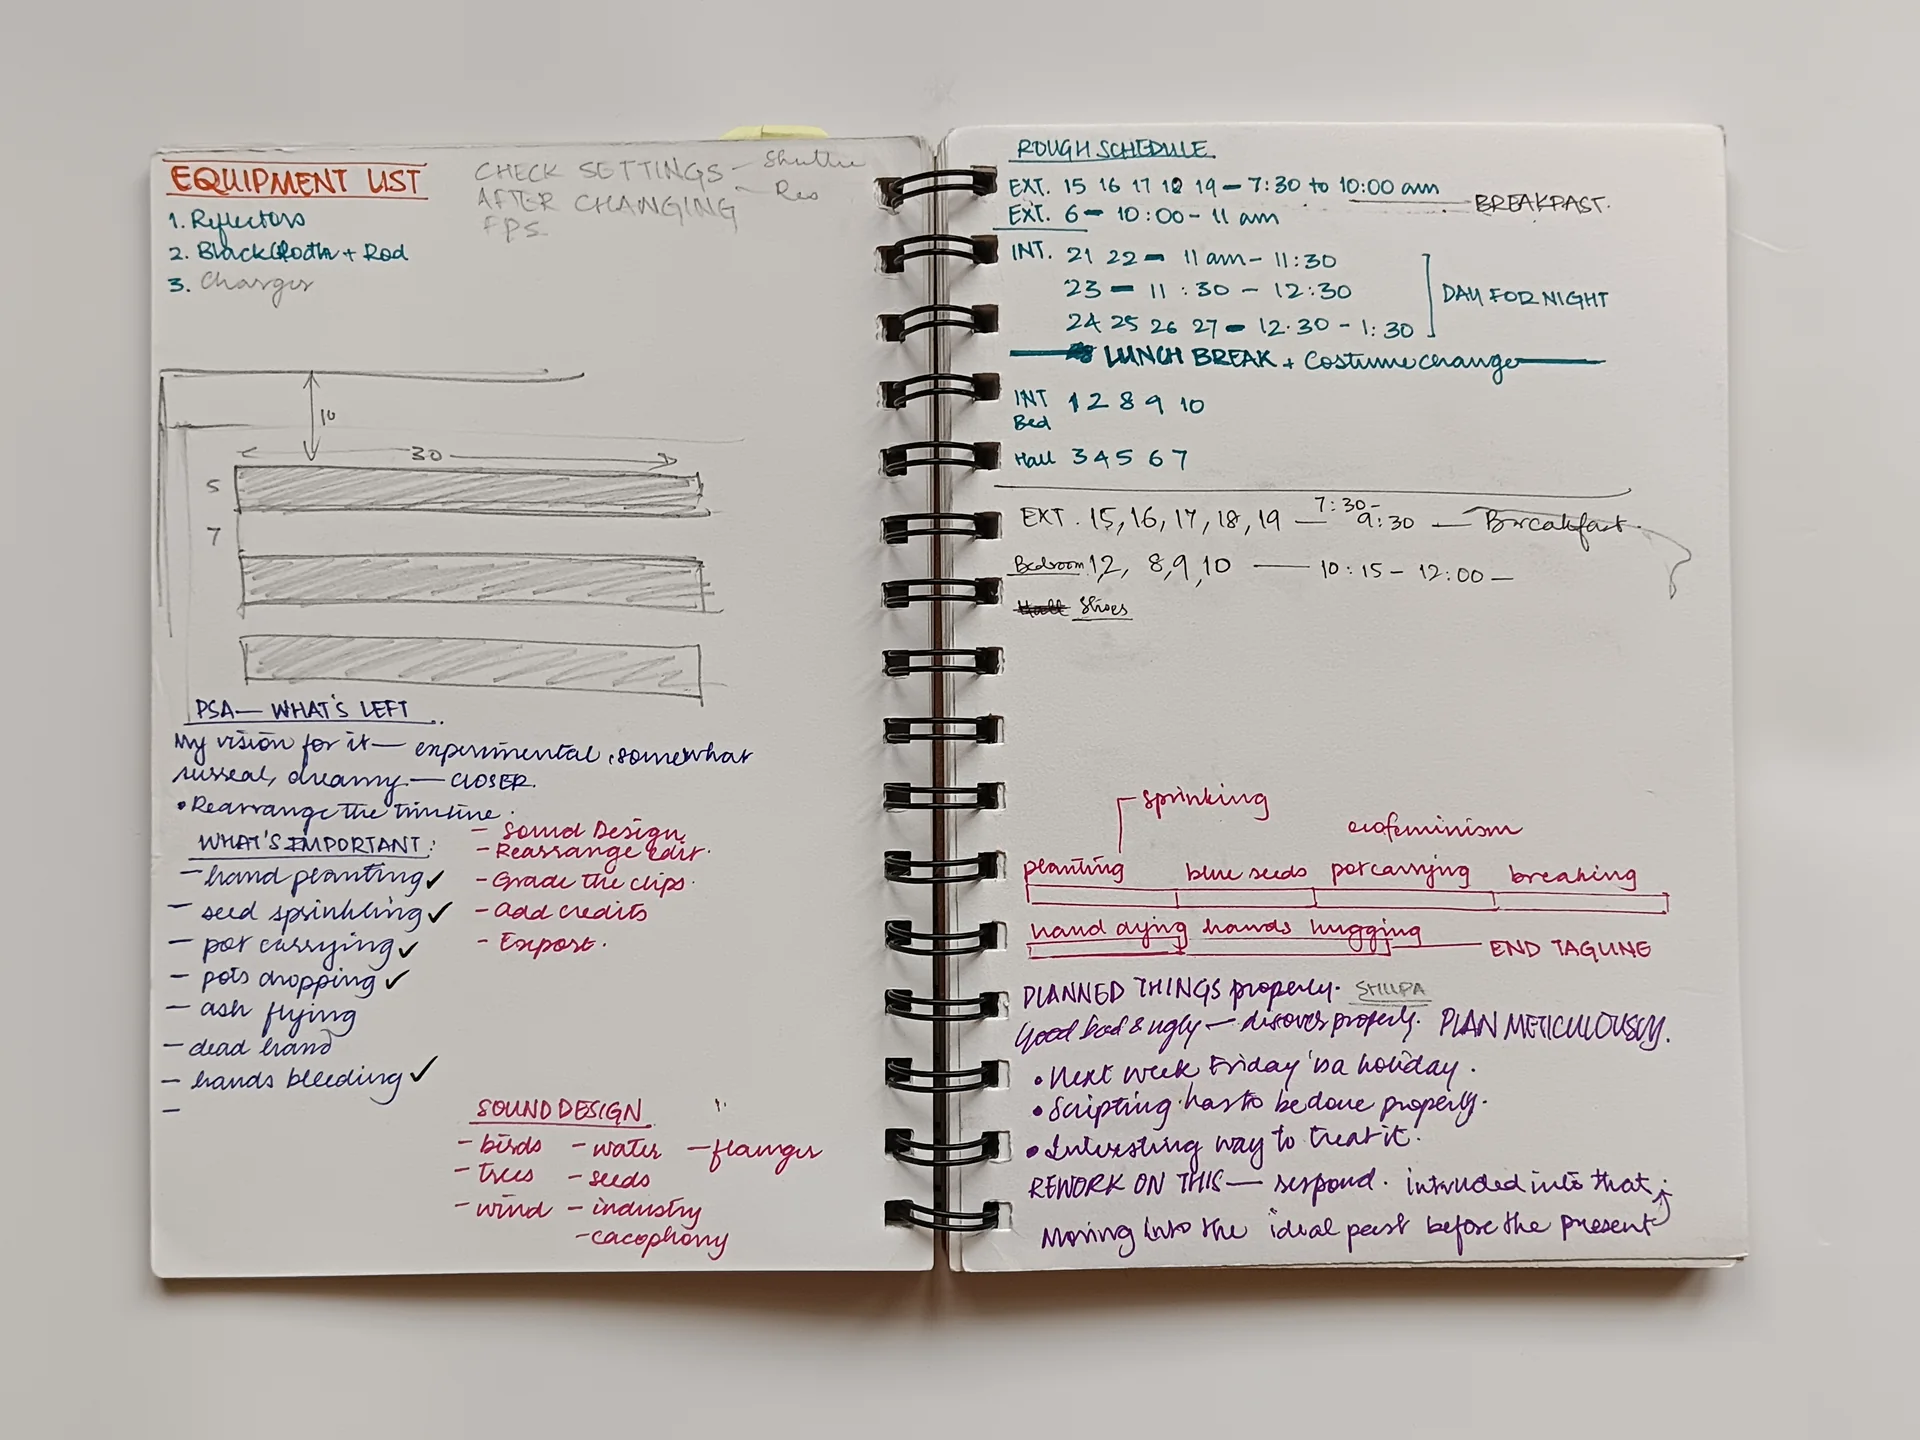 EQUIPMENT LIST
1. Reflectors
2. Black Cloth + Rod
3. Charger
CHECK SETTINGS — Shutter
AFTER CHANGING — Res
FPS.
10
30
5
7
PSA — WHAT'S LEFT
My vision for it — experimental, somewhat
surreal, dreamy — CLOSER.
• Rearrange the timeline.
WHAT'S IMPORTANT:
— hand planting ✓
— seed sprinkling ✓
— pot carrying ✓
— pots dropping ✓
— ash flying
— dead hand
— hands bleeding ✓
—
— Sound Design
— Rearrange edit.
— Grade the clips.
— Add credits
— Export.
SOUND DESIGN
— birds — water — flanger
— trees — seeds
— wind — industry
— cacophony
ROUGH SCHEDULE
EXT. 15 16 17 18 19 — 7:30 to 10:00 am — BREAKFAST.
EXT. 6 — 10:00 - 11 am
INT. 21 22 — 11 am - 11:30
23 — 11:30 - 12:30
24 25 26 27 — 12.30 - 1:30
DAY FOR NIGHT
LUNCH BREAK + Costume change
INT 1 2 8 9 10
Bed
Hall 3 4 5 6 7
EXT. 15, 16, 17, 18, 19 — 7:30 - 9:30 — Breakfast.
Bedroom 12, 8, 9, 10 — 10:15 - 12:00 —
Hall Shoes
sprinking
ecofeminism
planting blue seeds potcarrying breaking
hand dying hands hugging — END TAGLINE
PLANNED THINGS properly. SHILPA
Good bad & ugly — discover properly. PLAN METICULOUSLY.
• Next week Friday is a holiday.
• Scripting has to be done properly.
• Interesting way to treat it.
REWORK ON THIS — respond. intruded into that
Moving into the ideal past before the present